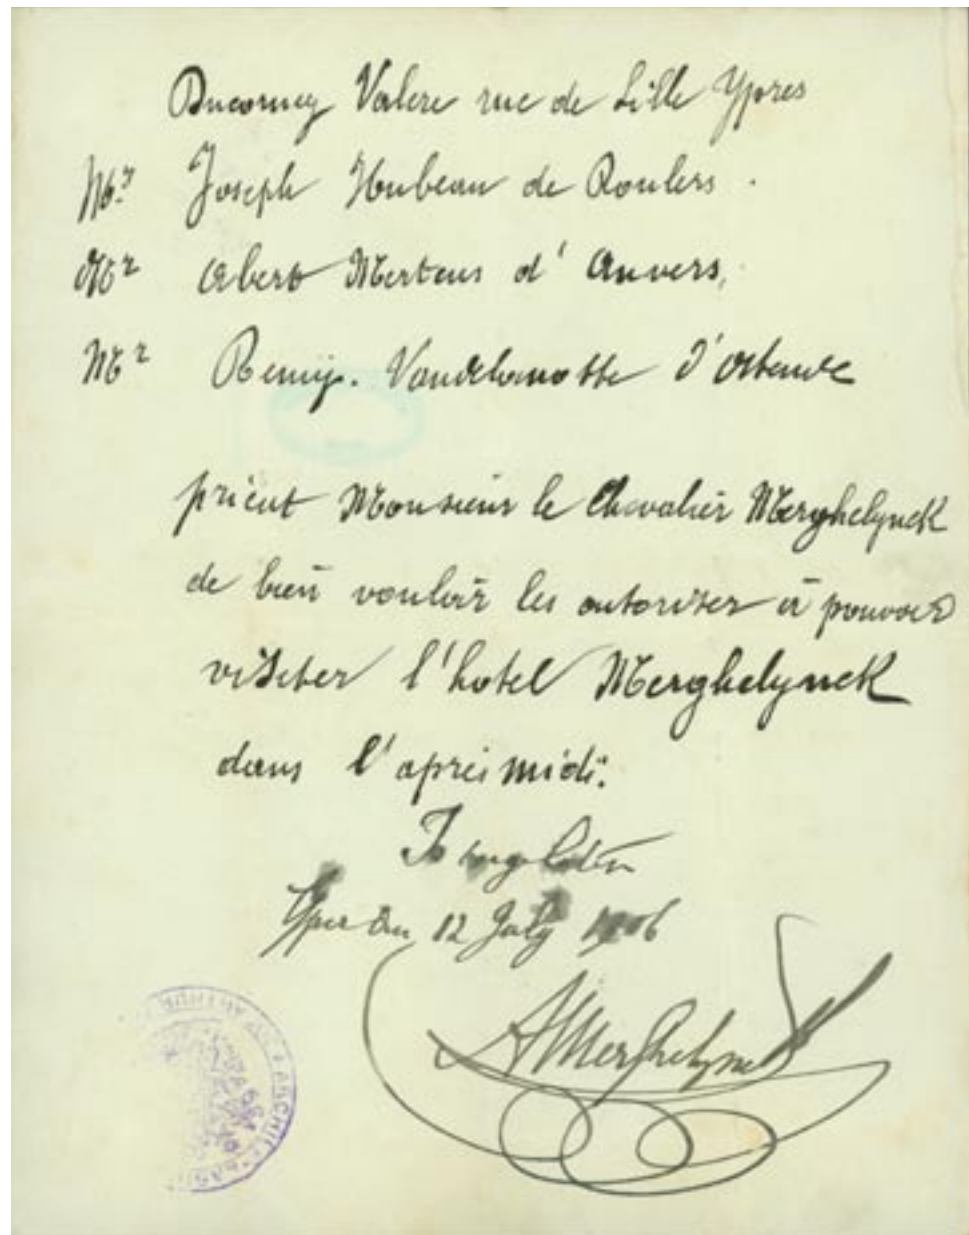 Valere rue de Lille Ypres
Mr Joseph Hubeau de Roulers.
Mr Albert Mertens d'Anvers,
Mr Remy. Vandelamotte d'Ostende
prient Monsieur le Chevalier Merghelynck
de bien vouloir les autoriser à pouvoir
visiter l'hotel Merghelynck
dans l'après midi.
12 July 1906
AMerghelynck